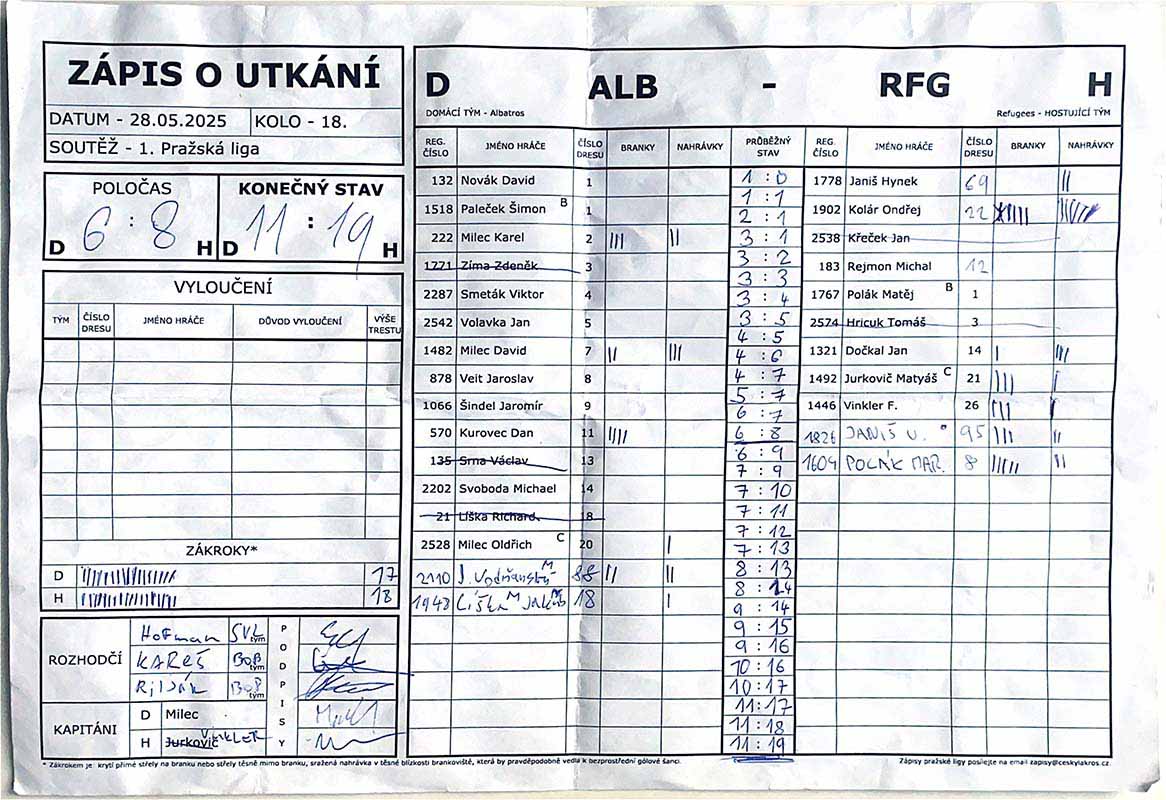 ZÁPIS O UTKÁNÍ
DATUM - 28.05.2025 KOLO - 18.
SOUTĚŽ - 1. Pražská liga
POLOČAS KONEČNÝ STAV
D 6 : 8 H D 11 : 19 H
VYLOUČENÍ
TÝM ČÍSLO DRESU JMÉNO HRÁČE DŮVOD VYLOUČENÍ VÝŠE TRESTU
ZÁKROKY*
D 17
H 18
ROZHODČÍ PODPISY
Hofman SVL tým
KAREŠ BOB tým
BOB tým
KAPITÁNI
D Milec
H Jurkovič VINKLER
D ALB - RFG H
DOMÁCÍ TÝM - Albatros Refugees - HOSTUJÍCÍ TÝM
REG. ČÍSLO JMÉNO HRÁČE ČÍSLO DRESU BRANKY NAHRÁVKY PRŮBĚŽNÝ STAV REG. ČÍSLO JMÉNO HRÁČE ČÍSLO DRESU BRANKY NAHRÁVKY
132 Novák David 1
1518 Paleček Šimon B 1
222 Milec Karel 2 ||| ||
1771 Zíma Zdeněk 3
2287 Smeták Viktor 4
2542 Volavka Jan 5
1482 Milec David 7 || |||
878 Veit Jaroslav 8
1066 Šindel Jaromír 9
570 Kurovec Dan 11 ||||
135 Srna Václav 13
2202 Svoboda Michael 14
21 Líška Richard 18
2528 Milec Oldřich C 20 |
2110 J. Vodňanský M 88 || ||
1943 Liška M Jakub 18 |
1 : 0
1 : 1
2 : 1
3 : 1
3 : 2
3 : 3
3 : 4
3 : 5
4 : 5
4 : 6
4 : 7
5 : 7
6 : 7
6 : 8
6 : 9
7 : 9
7 : 10
7 : 11
7 : 12
7 : 13
8 : 13
8 : 14
9 : 14
9 : 15
9 : 16
10 : 16
10 : 17
11 : 17
11 : 18
11 : 19
1778 Janiš Hynek 69 ||
1902 Kolár Ondřej 22
2538 Křeček Jan
183 Rejmon Michal 12
1767 Polák Matěj B 1
2574 Hricuk Tomáš 3
1321 Dočkal Jan 14 | |||
1492 Jurkovič Matyáš C 21 ||| |
1446 Vinkler F. 26 ||| |
1826 JANIŠ V. 95 ||| ||
1609 POLÁK MAR. 8 ||||| ||
* Zákrokem je: krytí přímé střely na branku nebo střely těsně mimo branku, sražená nahrávka v těsné blízkosti brankoviště, která by pravděpodobně vedla k bezprostřední gólové šanci.
Zápisy pražské ligy posílejte na email zapisy@ceskylakros.cz.